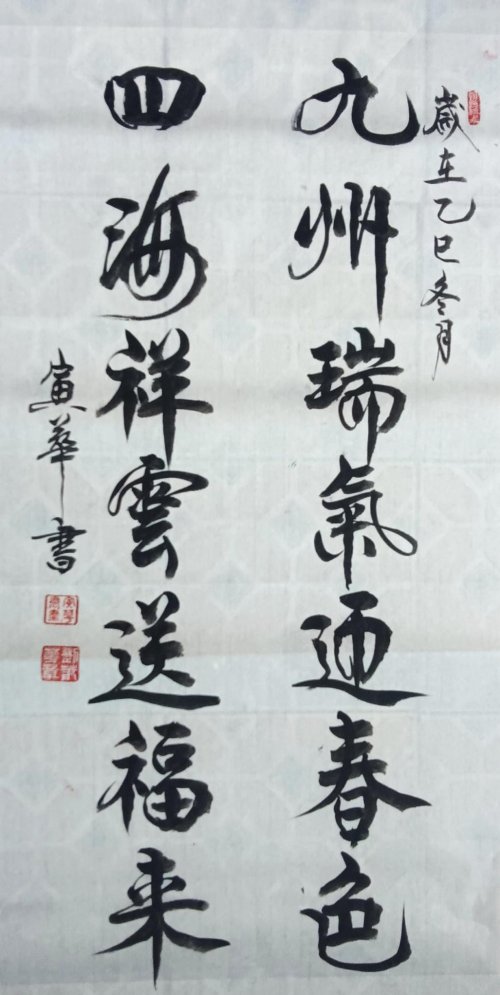 歲在乙巳冬月
九州瑞氣迎春色
四海祥雲送福来
寅華書